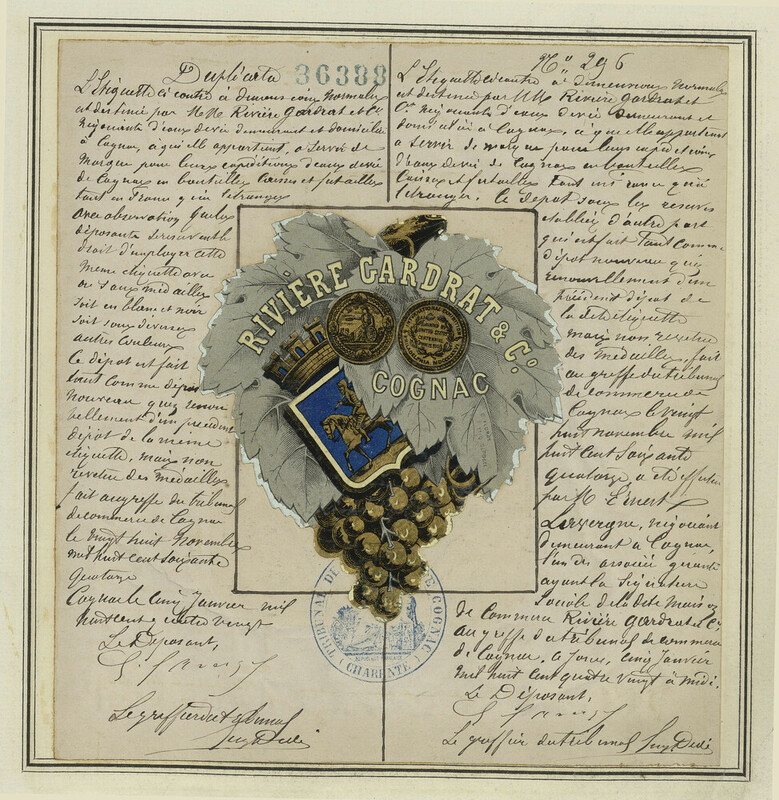 Duplicata 36388
L'Étiquette ci contre à dimensions Normales
et destinée par MM Rivière Gardrat et Cie
Négociants d'eaux devie demeurant et domiciliés
à Cognac, à qui elle appartient, à servir de
Marque pour leurs expéditions d'eaux devie
de Cognac en bouteilles Caisses et futailles
tant en France qu'à l'étranger
avec observation que les
déposants se reservent le
droit d'employer cette
même étiquette avec
ou sans médailles
soit en blanc et noir
soit sous diverses
autres couleurs
Ce dépôt est fait
tant comme dépôt
Nouveau que renou
vellement d'un précédent
dépôt de la même
étiquette, mais non
revêtue des médailles
fait au greffe du tribunal
de commerce de Cognac
le vingt huit Novembre
mil huit cent soixante
quatorze
Cognac le cinq Janvier mil
huit cent quatre vingt
Le Déposant,
Le greffier du tribunal
No 296
L'Étiquette ci contre à dimensions Normales
et destinée par MM Rivière Gardrat et
Cie Négociants d'eaux devie demeurant et
domiciliés à Cognac, à qui elle appartient
à servir de marque pour leurs expéditions
d'eaux devie de Cognac en bouteilles
Caisses et futailles tant en France qu'à
l'étranger. Ce dépôt sous les reserves
établies d'autre part
qui est fait tant comme
dépôt nouveau que
renouvellement d'un
précédent dépôt de
la dite étiquette
mais non revêtue
des Médailles, fait
au greffe du tribunal
de commerce de
Cognac le vingt
huit novembre mil
huit cent soixante
quatorze, a été effectué
par M Ernest
Lavergne, négociant
demeurant à Cognac,
l'un des associés gérants
ayant la Signature
Sociale de la dite Maison
de Commerce Rivière Gardrat et Cie
au greffe du tribunal de commerce
de Cognac, ce jour, cinq Janvier
mil huit cent quatre vingt à midi.
Le Déposant,
Le greffier du tribunal
RIVIÈRE GARDRAT & Co.
COGNAC
TRIBUNAL DE COMMERCE DE COGNAC
(CHARENTE)